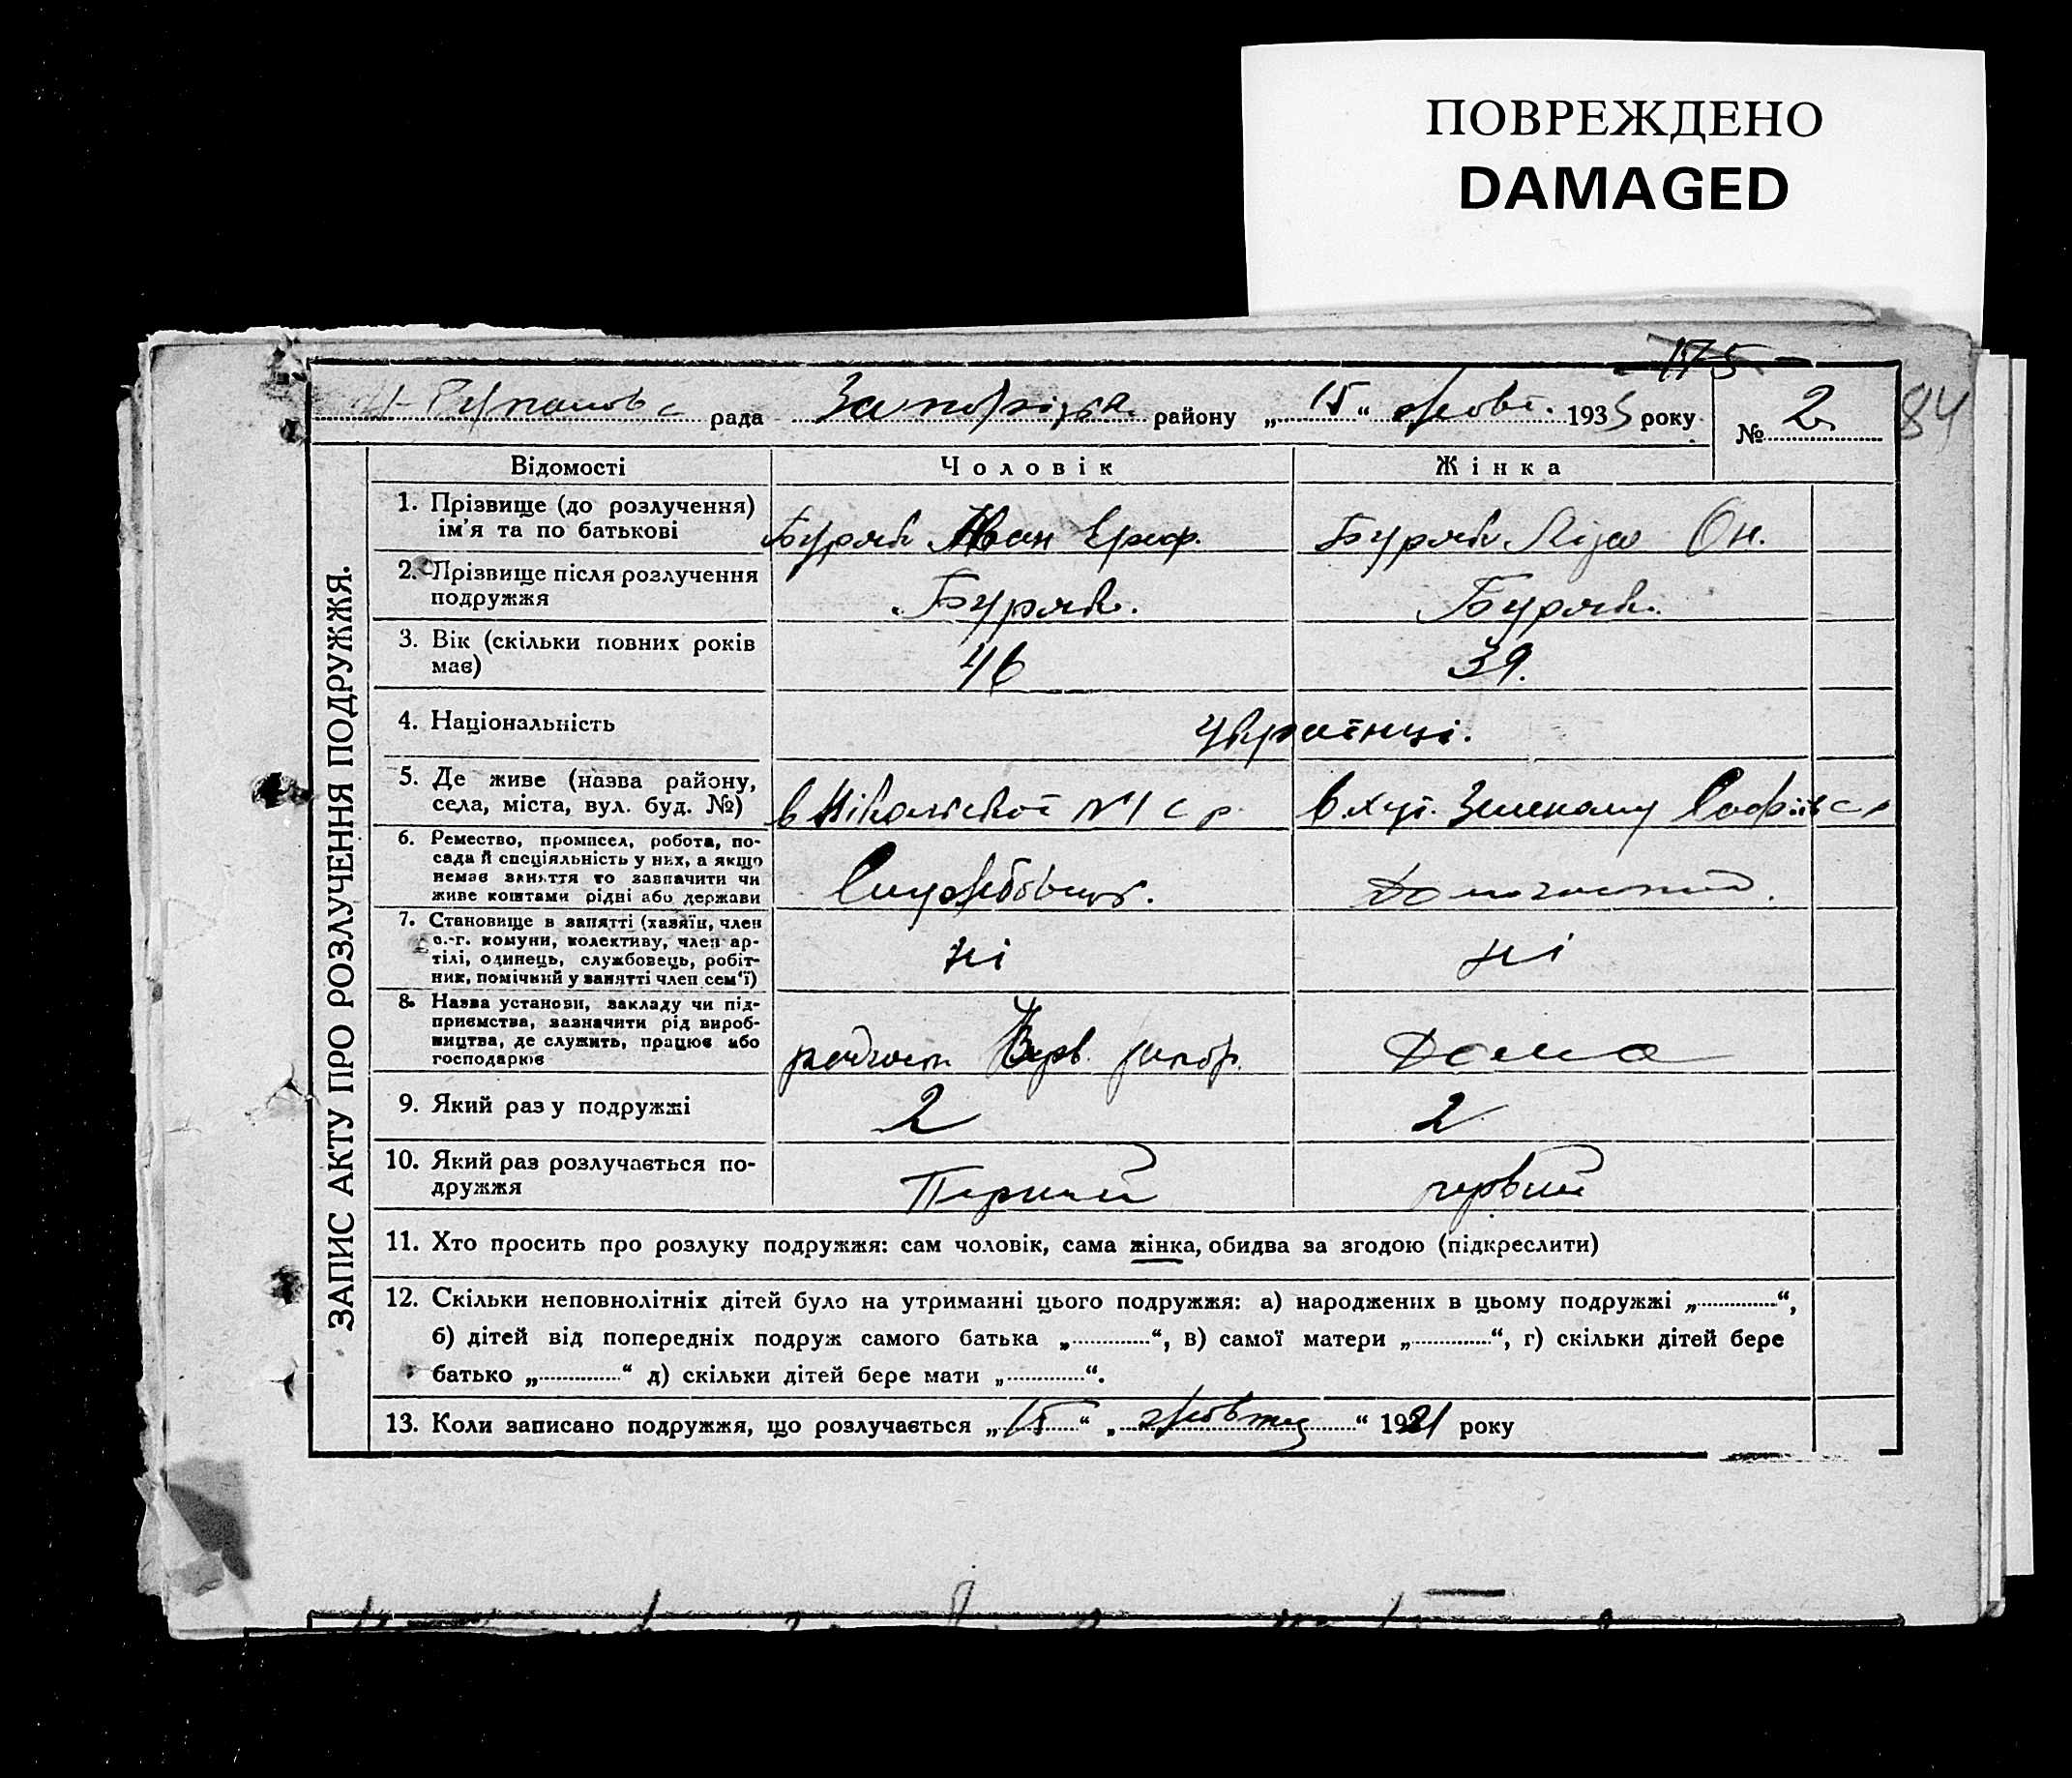 ПОВРЕЖДЕНО
DAMAGED
175
рада район „15“ жовт. 1935 року № 2 84
ЗАПИС АКТУ ПРО РОЗЛУЧЕННЯ ПОДРУЖЖЯ.
Відомості Чоловік Жінка
1. Прізвище (до розлучення)
ім'я та по батькові
Буряк Иван Буряк Ліза Он.
2. Прізвище після розлучення
подружжя
Буряк. Буряк.
3. Вік (скільки повних років
має)
46 39.
4. Національність
українці.
5. Де живе (назва району,
села, міста, вул. буд. №)
в Нікольської №1 с р. в хут. Зеленому Софіїв с р
6. Ремество, промисел, робота, по-
сада й спеціяльність у них, а якщо
немає заняття то зазначити чи
живе коштами рідні або держави
Службовець.
7. Становище в занятті (хазяїн, член
с.-г. комуни, колективу, член ар-
тілі, одинець, службовець, робіт-
ник, помічний у занятті член сем'ї)
ні ні
8. Назва установи, закладу чи під-
приємства, зазначити рід вироб-
ництва, де служить, працює або
господарює
Дома
9. Який раз у подружжі
2 2
10. Який раз розлучається по-
дружжя
Перший первий
11. Хто просить про розлуку подружжя: сам чоловік, сама жінка, обидва за згодою (підкреслити)
12. Скільки неповнолітніх дітей було на утриманні цього подружжя: а) народжених в цьому подружжі „.............“,
б) дітей від попередніх подруж самого батька „.............“, в) самої матери „.............“, г) скільки дітей бере
батько „.............“ д) скільки дітей бере мати „.............“.
13. Коли записано подружжя, що розлучається „15“ „жовтня“ 1921 року